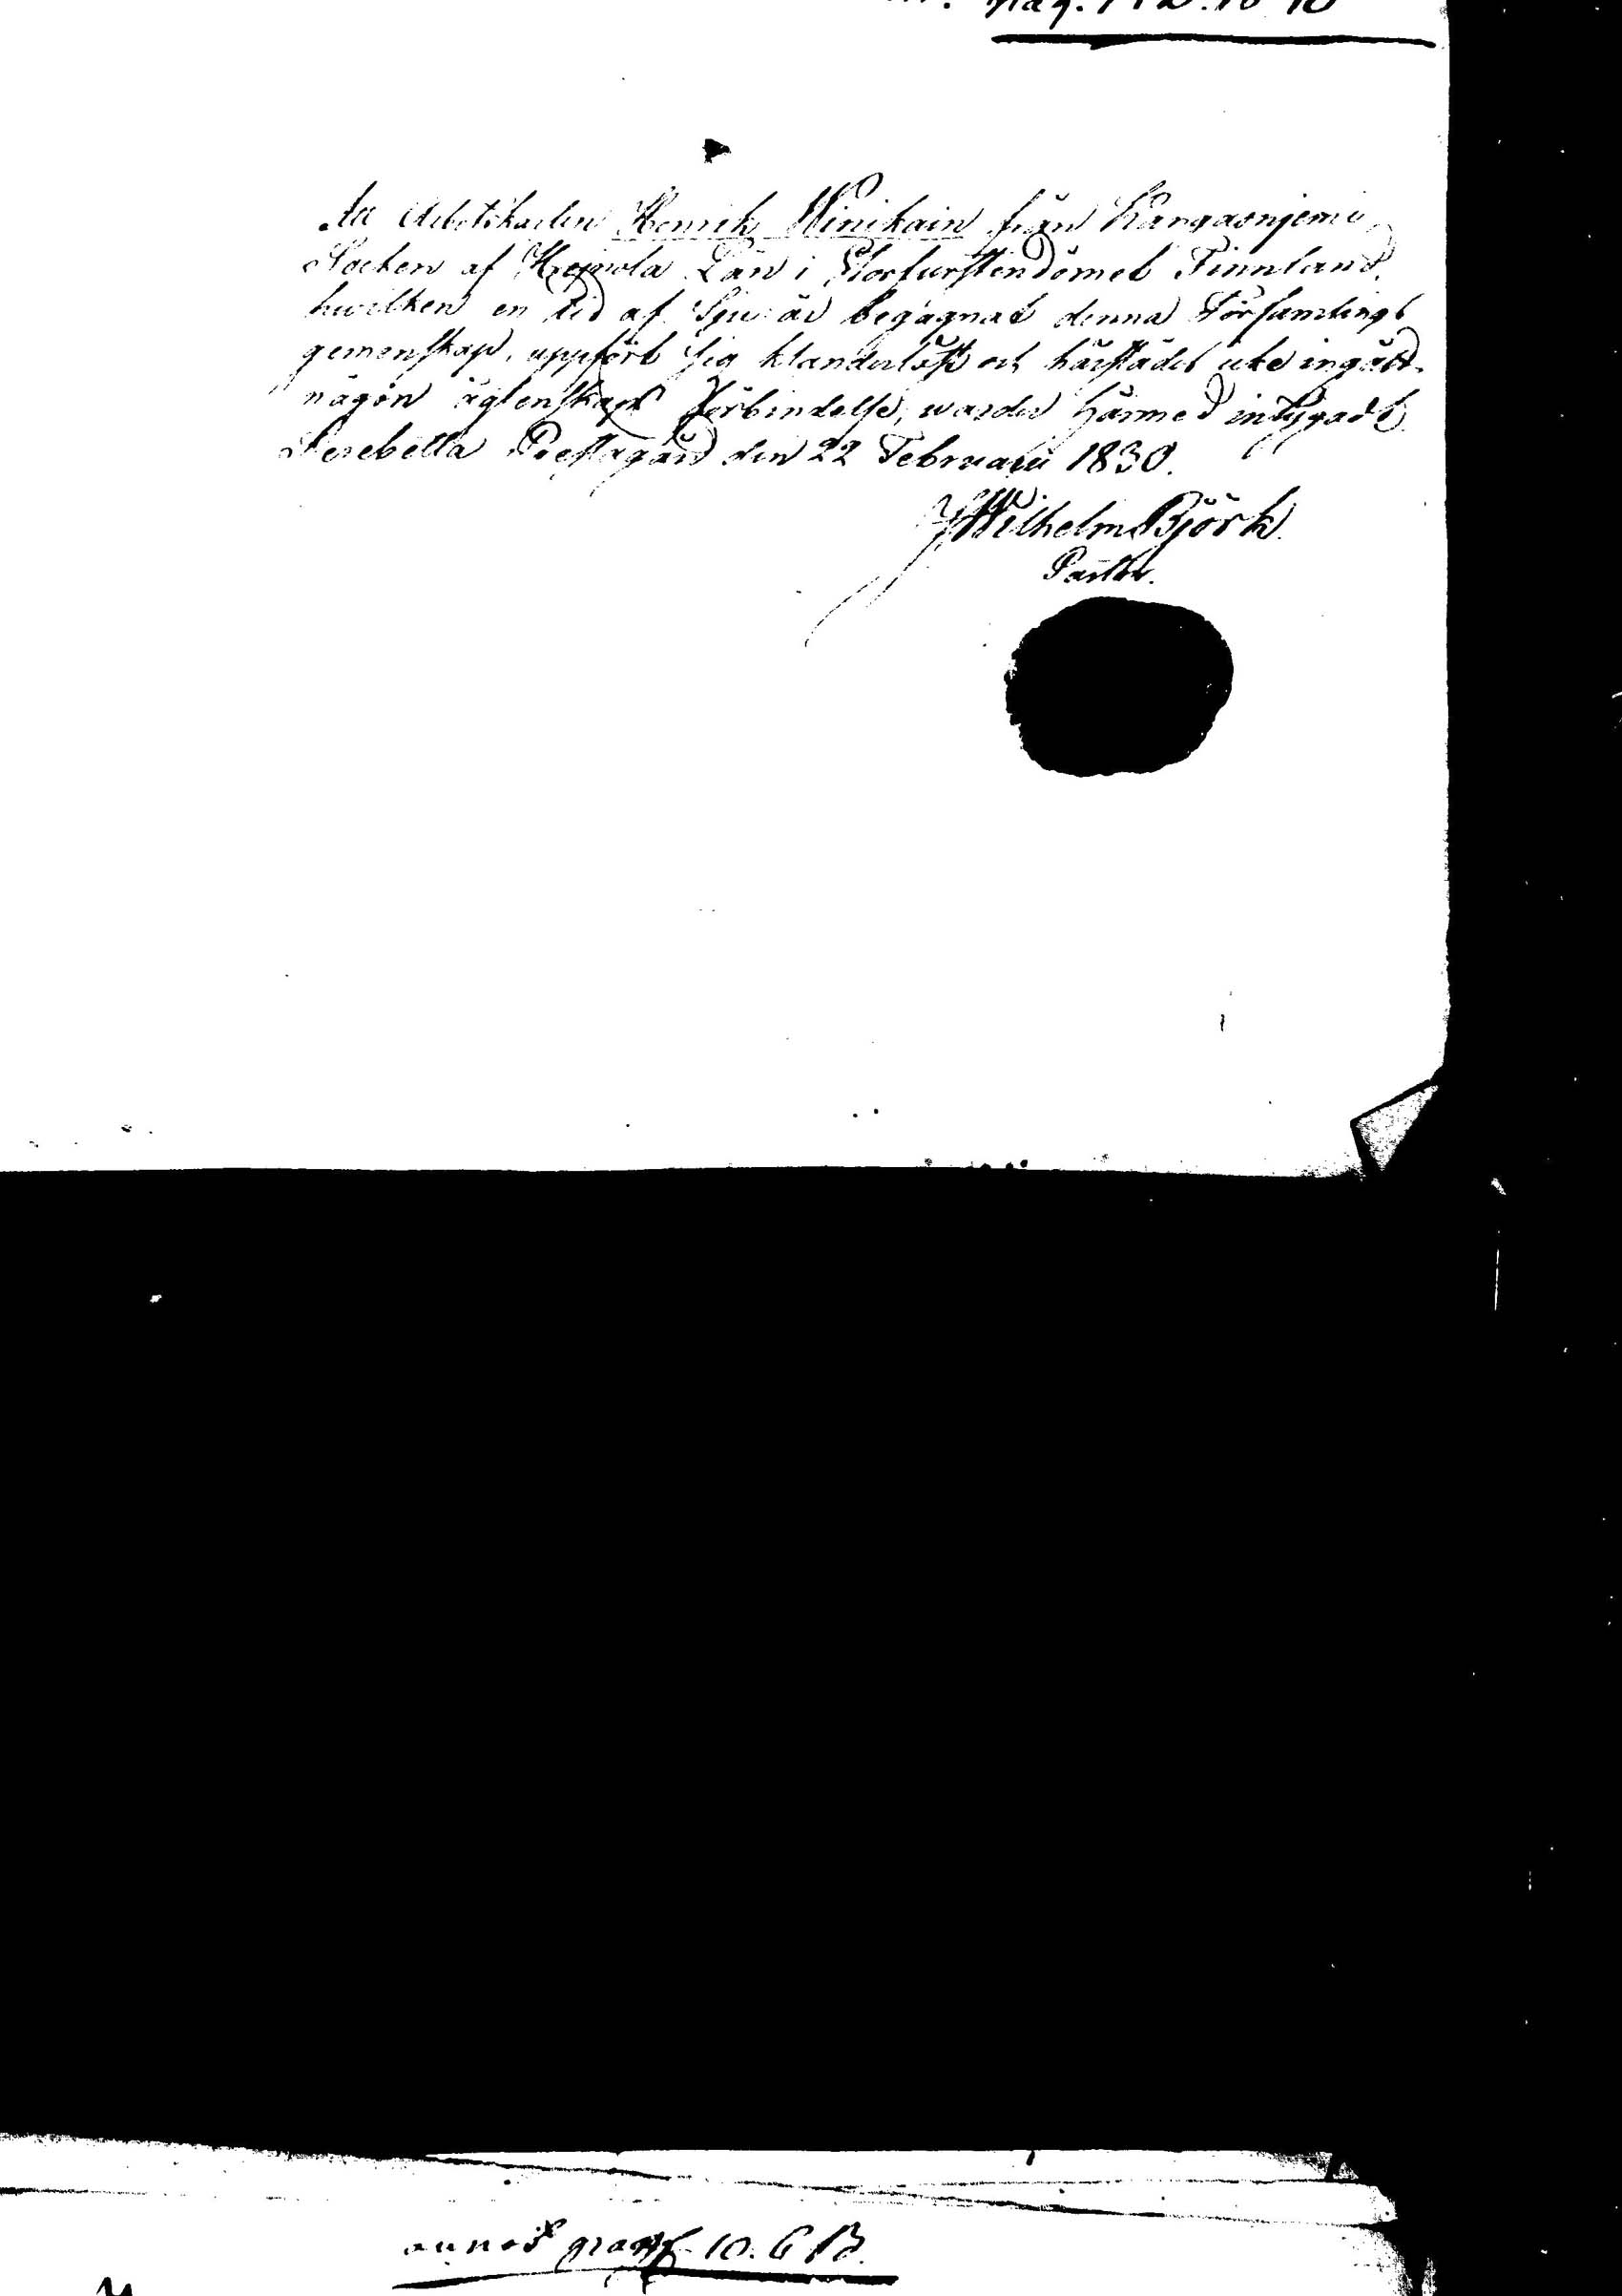 Att Arbetskarlen Henrik Winikain från Kangasnjemi
Socken af Heinola Län i Storfurstendömet Finnland,
hwilken en tid af Sju år begagnat denna Församlings
gemenskap, uppfört sig klanderlöst och härstädes icke ingått
någon ägtenskaps Förbindelse, warder härmed intygadt.
Serebetta Prestagård den 22 Februarii 1830.
Wilhelm Björk.
Pastor.
10. 6 B.